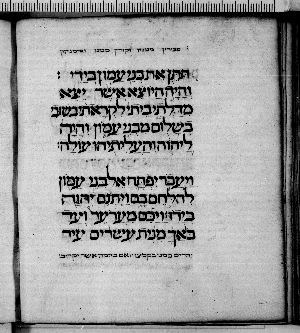 תתן את בני עמון בידי :
והיה היוצא אשר יצא
מדלתי ביתי לקראתי בשובי
בשלום מבני עמון והיה
ליהוה והעליתיהו עולה :
ויעבר יפתח אל בני עמון
להלחם בם ויתנם יהוה
בידו ויכם מערער ועד
באך מנית עשרים עיר